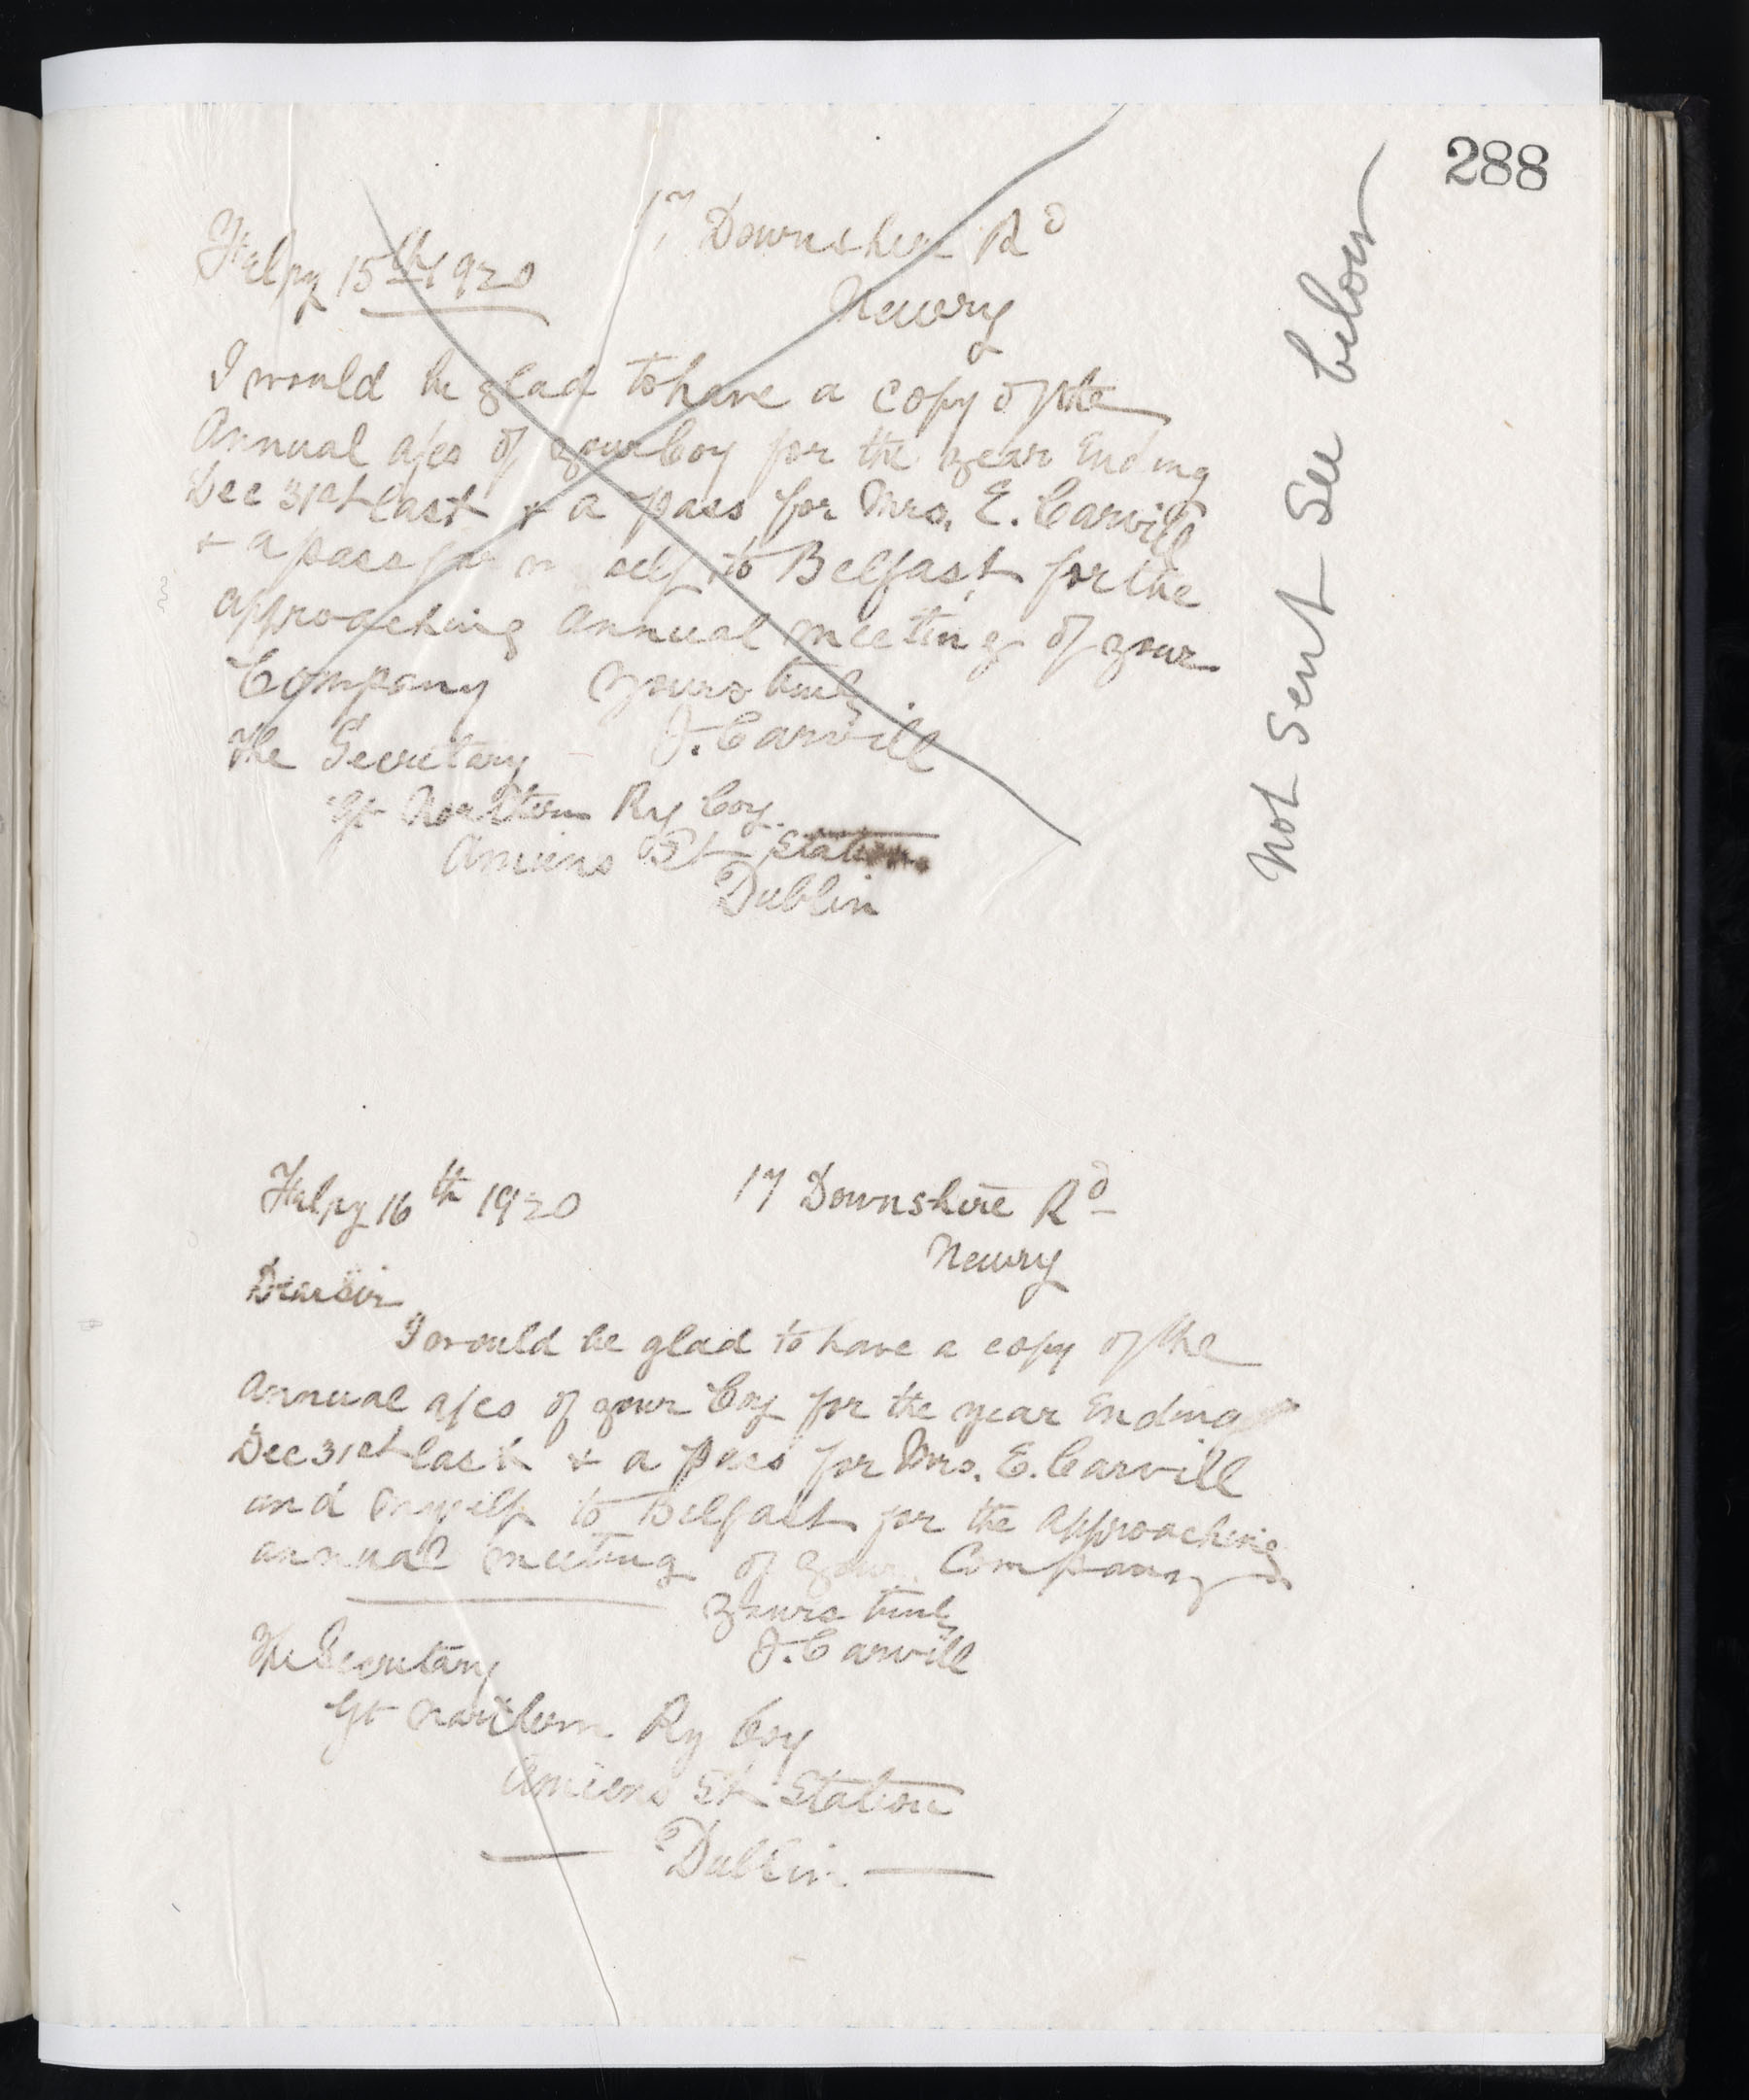 288
17 Downshire Rd
Feby 15th 1920
Newry
I would be glad to have a copy of the
Annual a/cs of your Coy for the year Ending
Dec 31st last + a pass for Mrs. E. Carvill
+ a pass for self to Belfast for the
approaching annual meeting of your
Company Yours truly
The Secretary - J. Carvill
Gt Northern Ry Coy.
Amiens St Station
Dublin
Not sent See below
Feby 16th 1920 17 Downshire Rd
Newry
Dear Sir
I would be glad to have a copy of the
Annual a/cs of your Coy for the year Ending
Dec 31st last + a pass for Mrs. E. Carvill
and myself to Belfast for the approaching
annual meeting of your Company
Yours truly
The Secretary J. Carvill
Gt Northern Ry Coy
Amiens St Station
Dublin